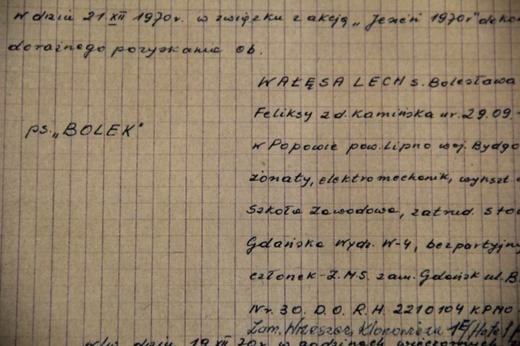 w dniu 21 XII 1970r. w związku z akcją „Jesień 1970r" dokon
doraźnego pozyskania ob.
WAŁĘSA LECH s. Bolesława
Feliksy z d. Kamińska ur. 29.09.
ps. „BOLEK"
w Popowie pow. Lipno woj. Bydgo
żonaty, elektromechanik, wykszt.
Szkoła Zawodowa, zatrud. Sto
Gdańska Wydz. W-4, bezpartyjny
członek Z.M.S. zam. Gdańsk ul. B.
Nr. 30. D.O.R.H. 2210104 KPMO
Zam. Wrzeszcz, Klonowicza
w dniu 19 XII 70r. w godzinach wieczornych